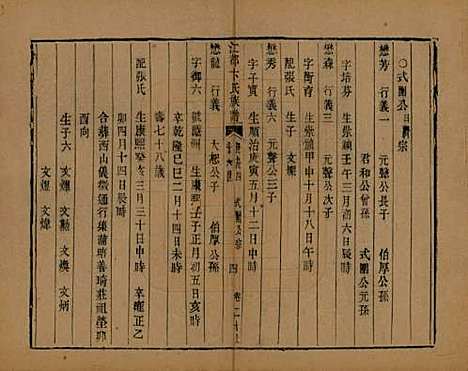 ○式圃公曰㽦宗
懋芳 行義一 元聲公長子 伯厚公孫
君和公曾孫 式圃公元孫
字培芬 生崇禎壬午三月初六日子時
懋森 行義三 元聲公次子
字衛育 生崇禎甲申十月十八日午時
配張氏 生子一 文煋
懋秀 行義六 元聲公三子
字子實 生順治庚寅五月十二日寅時
江都卞氏族譜 式圃公 四
懋龍 行義 大起公子 伯厚公孫
字御六 號 洲 生康熙壬子正月初五日亥時
卒乾隆己巳二月十四日未時
壽七十八歲
配張氏 生康熙癸亥三月三十日申時 卒雍正乙
卯四月十四日辰時
合葬西山儀徵通行集蒲塘善琦莊祖塋 卯
酉向
生子六 文煋 文勳 文燠 文炳
文煒 文煐